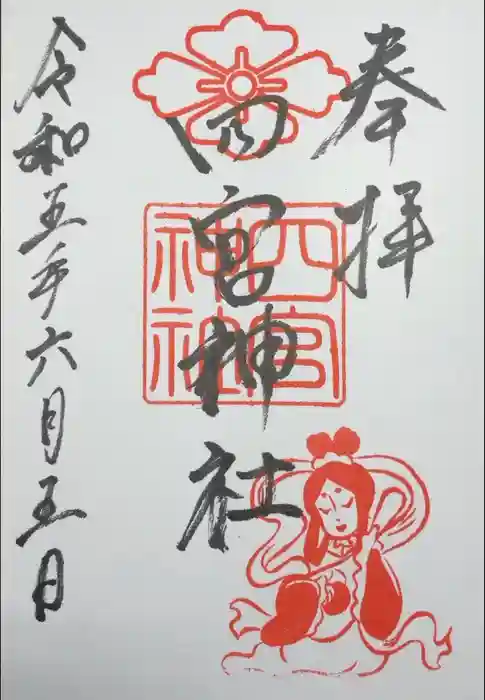 奉拝
四宮神社
四宮神社
令和五年六月五日